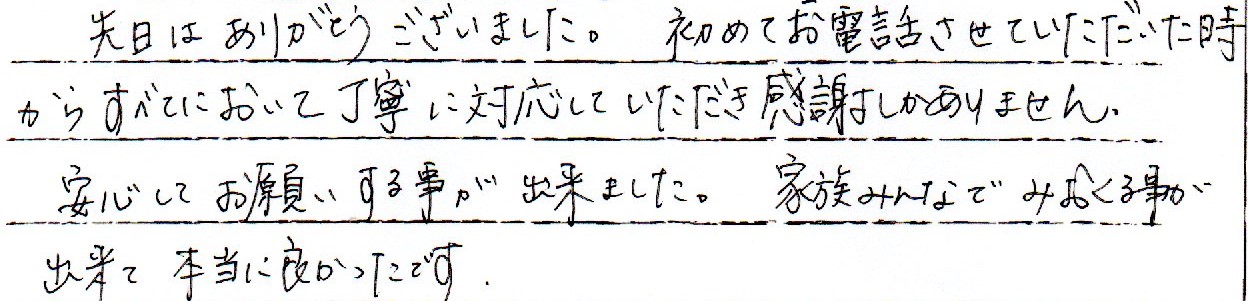 先日はありがとうございました。 初めてお電話させていただいた時
からすべてにおいて丁寧に対応していただき感謝しかありません。
安心してお願いする事が出来ました。 家族みんなでみおくる事が
出来て本当に良かったです.